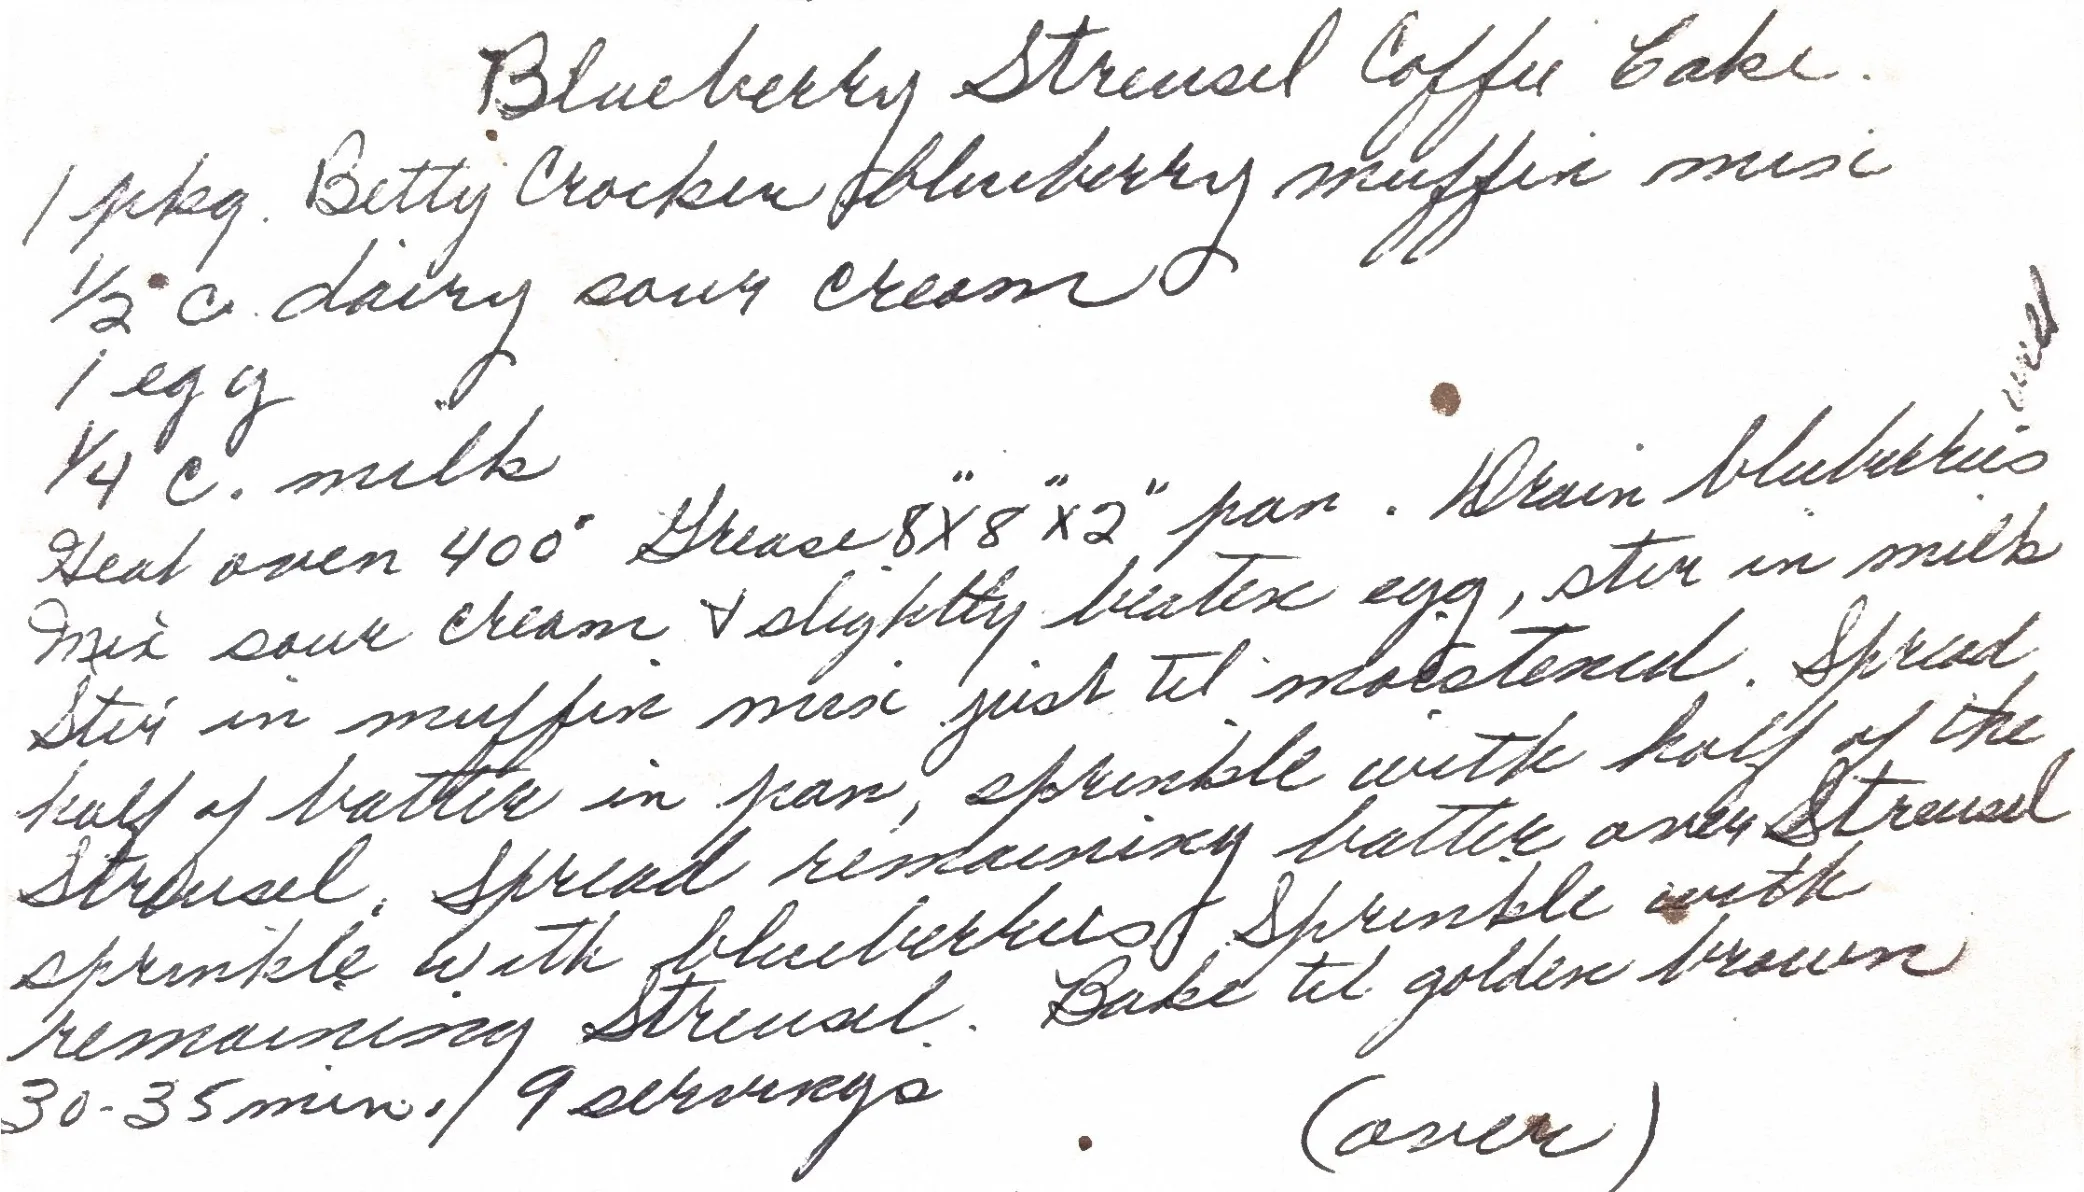 Blueberry Streusel Coffee Cake.
1 pkg. Betty Crocker blueberry muffin mix
1/2 c. dairy sour cream
1 egg
1/4 c. milk
Heat oven 400° Grease 8"x8"x2" pan. Drain blueberries
Mix sour cream & slightly beaten egg, stir in milk
Stir in muffin mix just til moistened. Spread
half of batter in pan, sprinkle with half of the
Streusel. Spread remaining batter over Streusel
sprinkle with blueberries, Sprinkle with
remaining Streusel. Bake til golden brown
30-35 min. / 9 servings
(over)